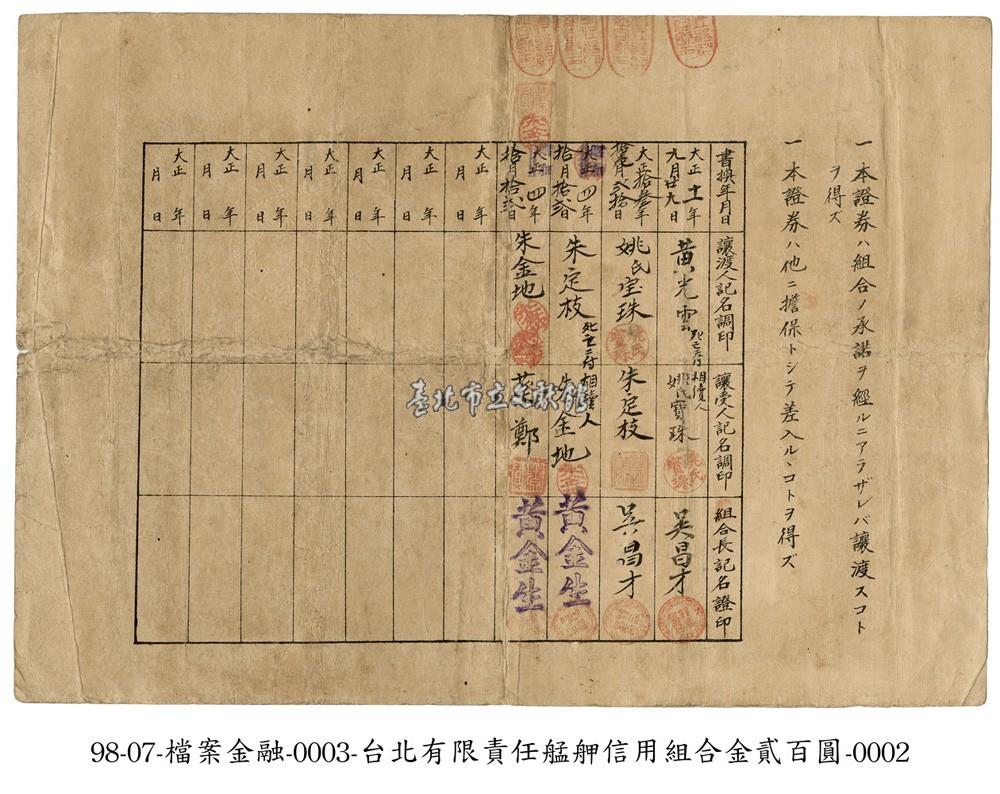 一本證券ハ組合ノ承諾ヲ經ルニアラザレバ讓渡スコト
ヲ得ズ
一本證券ハ他ニ擔保トシテ差入ルヽコトヲ得ズ
書換年月日
讓渡人記名調印
讓受人記名調印
組合長記名證印
大正十一年
九月廿九日
黃光雲
死亡ニ付相續人
姚氏寶珠
吳昌才
大正拾參年
拾貳月貳拾日
姚氏宝珠
朱定枝
吳昌才
大正四年
拾月拾貳日
朱定枝
死亡ニ付相續人
朱金地
黃金生
大正四年
拾月拾貳日
朱金地
鄭
黃金生
大正年
月日
大正年
月日
大正年
月日
大正年
月日
大正年
月日
大正年
月日
大正年
月日
臺北市立文獻館
98-07-檔案金融-0003-台北有限責任艋舺信用組合金貳百圓-0002